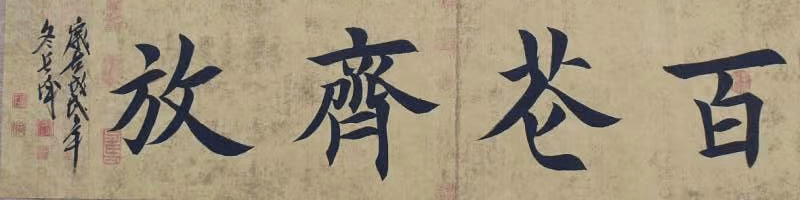 百花齊放
歲在戊戌年
冬長峰